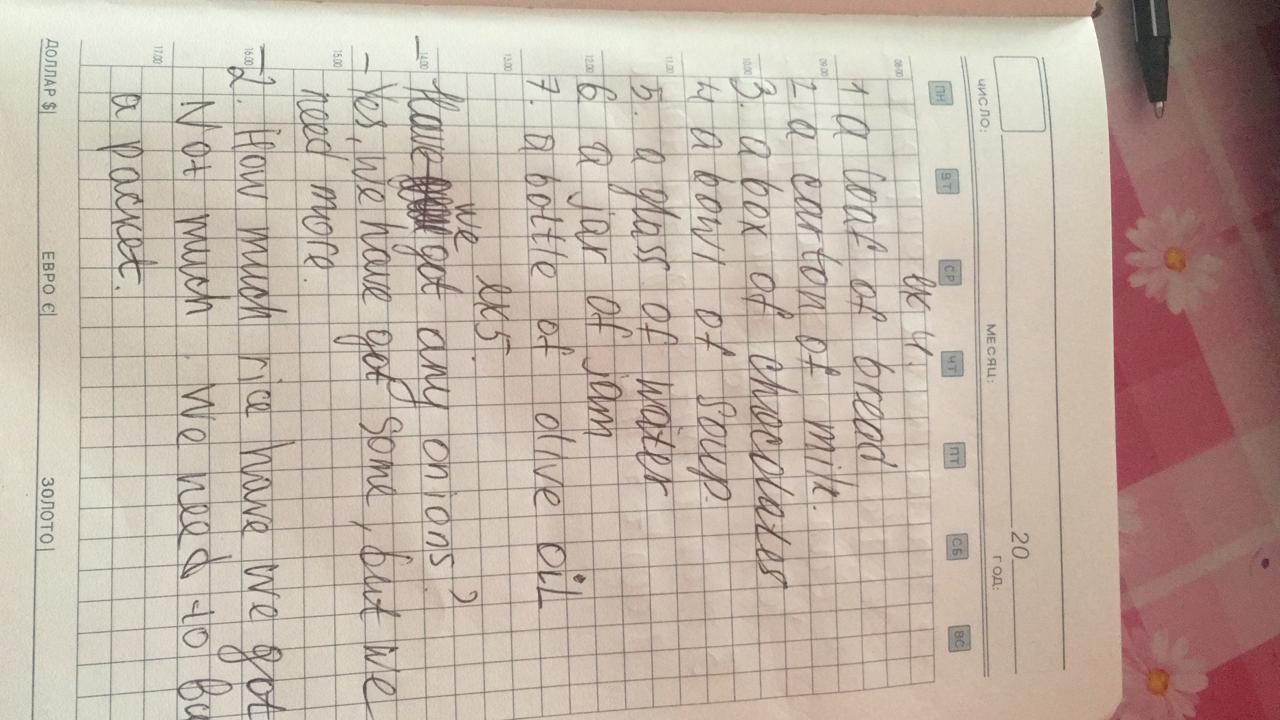 20 ГОД:
ЧИСЛО: МЕСЯЦ:
ПН ВТ СР ЧТ ПТ СБ ВС
08:00
09:00
10:00
11:00
12:00
13:00
14:00
15:00
16:00
17:00
ex 4.
1 a loaf of bread
2 a carton of milk.
3. a box of chocolates
4 a bowl of soup.
5. a glass of water
6 a jar of jam
7. a bottle of olive oil
ex5.
we
- Have got any onions?
- Yes, we have got some, but we
need more.
- 2. How much rice have we got
Not much. We need to bu
a packet.
ДОЛЛАР $ ЕВРО € ЗОЛОТО